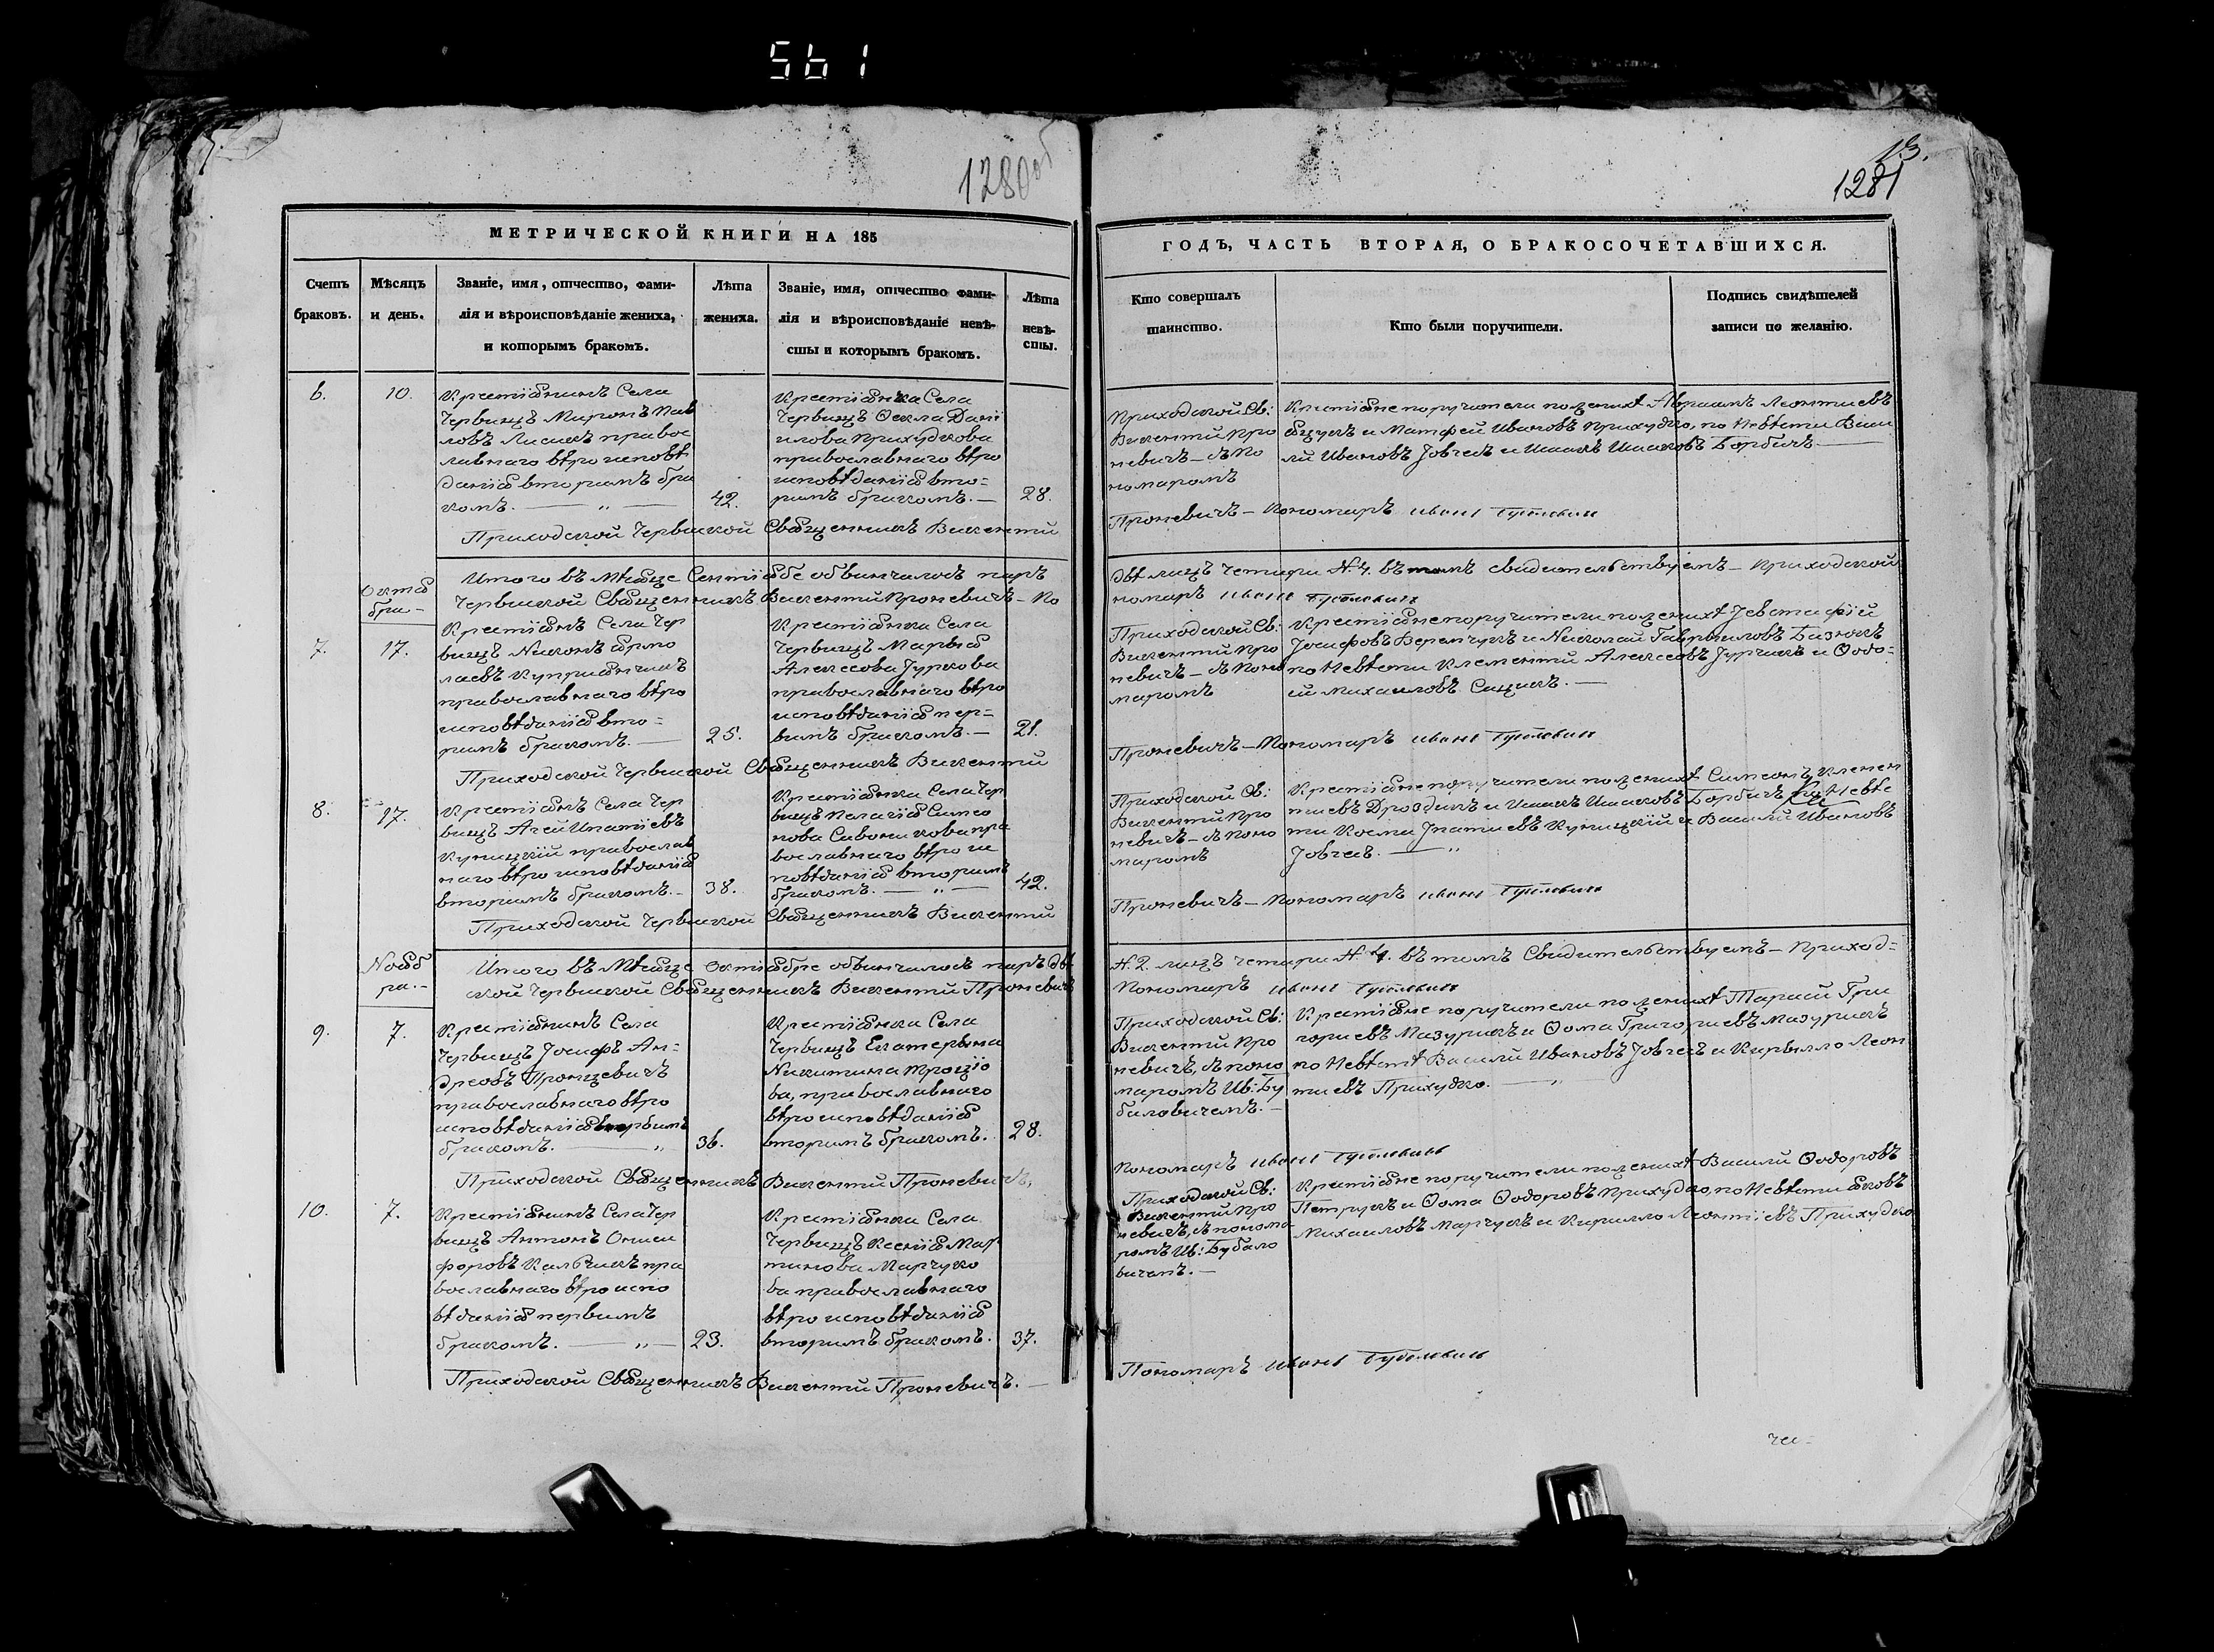 561
1280об
13.
1281
МЕТРИЧЕСКОЙ КНИГИ НА 185
ГОДЪ, ЧАСТЬ ВТОРАЯ, О БРАКОСОЧЕТАВШИХСЯ.
Счетъ
браковъ.
Мѣсяцъ
и день.
Званіе, имя, отчество, фами-
лія и вѣроисповѣданіе жениха,
и которымъ бракомъ.
Лѣта
жениха.
Званіе, имя, отчество фами-
лія и вѣроисповѣданіе невѣ-
сты и которымъ бракомъ.
Лѣта
невѣ-
сты.
Кто совершалъ
таинство.
Кто были поручители.
Подпись свидѣтелей
записи по желанію.
6.
10.
Крестіянинъ Села
Червищъ Миронъ Пав
ловъ Лисикъ правос
лавнаго вѣро исповѣ
данія вторимъ бра
комъ. — „ —
42.
Крестіянка Села
Червищъ Ѳекла Дані
илова Прихудкова
православнаго вѣро
исповѣданія вто=
римъ бракомъ. —
28.
Приходской Св:
Викентій Про
невичъ — съ По
номаромъ
Крестіяне поручители по женихѣ Авраамъ Леонтіевъ
и Матфей Ивановъ Прихудко, по Невѣсти Васи
ли Ивановъ Іовчикъ и Исаакъ Исаковъ Борбичъ —
Приходской Червиской Священникъ Викентій
Проневичъ — Пономаръ Иванъ Бубиловичъ
Итого въ Мѣсяце Сентябе обвинчалось паръ
двѣ лицъ четири №4. въ томъ свидительствуемъ — Приходской
Червиской Священникъ Викентій Проневичъ — По
номаръ Иванъ Бубиловичъ
Октя
бра —
7.
17.
Крестіянъ Села Чер
вищъ Никонъ Ярмо
лаевъ Куприянчикъ
православнаго вѣро
исповѣданія вто=
римъ бракомъ. —
25.
Крестіянка Села
Червищъ Марыя
Алексеова Јуркова
православнаго вѣро
исповѣданія пер=
вимъ бракомъ. —
21.
Приходской Св:
Викентій Про
невичъ — съ Поно
маромъ
Крестіяне поручители по женихѣ Јевстафій
Јосифовъ Веремчукъ и Николай Гавриловъ Бизюкъ
по Невѣсти Климентій Алексеовъ Јурчикъ и Ѳодо=
ій Михаиловъ Сащикъ. —
Приходской Червиской Священникъ Викентій
Проневичъ — Пономаръ Иванъ Бубиловичъ
8.
17.
Крестіянъ Села Чер
вищъ Агей Ипатіевъ
Куницкій православ
наго вѣро исповѣданія
вторимъ бракомъ. —
38.
Крестіянка Села Чер
вищъ Пелагія Симео
нова пра
вославнаго вѣро ис
повѣданія вторимъ
бракомъ. — „ —
42.
Приходской Св:
Викентій Про
невичъ — съ Поно
маромъ
Крестіяне поручители по женихѣ Симеонъ Климен
тіевъ Дроздикъ и Исаакъ Исаковъ Борбичъ по Невѣс
ти Косма Јпатіевъ Куницкій и Васили Ивановъ
Јовчикъ. — „
Приходской Червиской Священникъ Викентій
Проневичъ — Пономаръ Иванъ Бубиловичъ
Нояб
ра. —
Итого въ Мѣсяце Октябре обвинчалось паръ двѣ
№2. лицъ четири №4. въ томъ Свидительствуемъ — Приход=
ской Червиской Священникъ Викентій Проневичъ
Пономаръ Иванъ Бубиловичъ
9.
7.
Крестіянинъ Села
Червищъ Јосифъ Ан=
дреовъ Пронцевичъ
православнаго вѣро
исповѣданія
бракомъ. — „
36.
Крестіянка Села
Червищъ Екатерына
Никитина Троціо
ва, православнаго
вѣро исповѣданія
вторимъ бракомъ.
28.
Приходской Св:
Викентій Про
невичъ, съ поно
маромъ Ив: Бу
биловичемъ. —
Крестіяне поручители по женихѣ Тарасій Гри
гориевъ Мазурикъ и Ѳома Григориевъ Мазурикъ
по Невѣстѣ Васили Ивановъ Јовчикъ и Кирылло Леон
тіевъ Прихудко. — „
Приходской Священникъ Викентій Проневичъ,
Пономаръ Иванъ Бубиловичъ
10.
7.
Крестіянинъ Села Чер
вищъ Антонъ Ониси
форовъ Кальчикъ пра
вославнаго вѣро испо
вѣданія первимъ
бракомъ. — „ —
23.
Крестіянка Села
Червищъ Ксенія Мар
тинова Марчуко
ва православнаго
вѣро исповѣданія
вторимъ бракомъ.
37.
Приходской Св:
Викентій Про
невичъ, съ понома
ромъ Ив: Бубало
вичемъ. —
Крестіяне поручители по женихѣ Васили Ѳодоровъ
Петрукъ и Ѳома Ѳодоровъ Прихудко, по Невѣсти Яковъ
Михаиловъ Марчукъ и Кирилло Леонтіевъ Прихудко
Приходской Священникъ Викентій Проневичъ. —
Пономаръ Иванъ Бубиловичъ